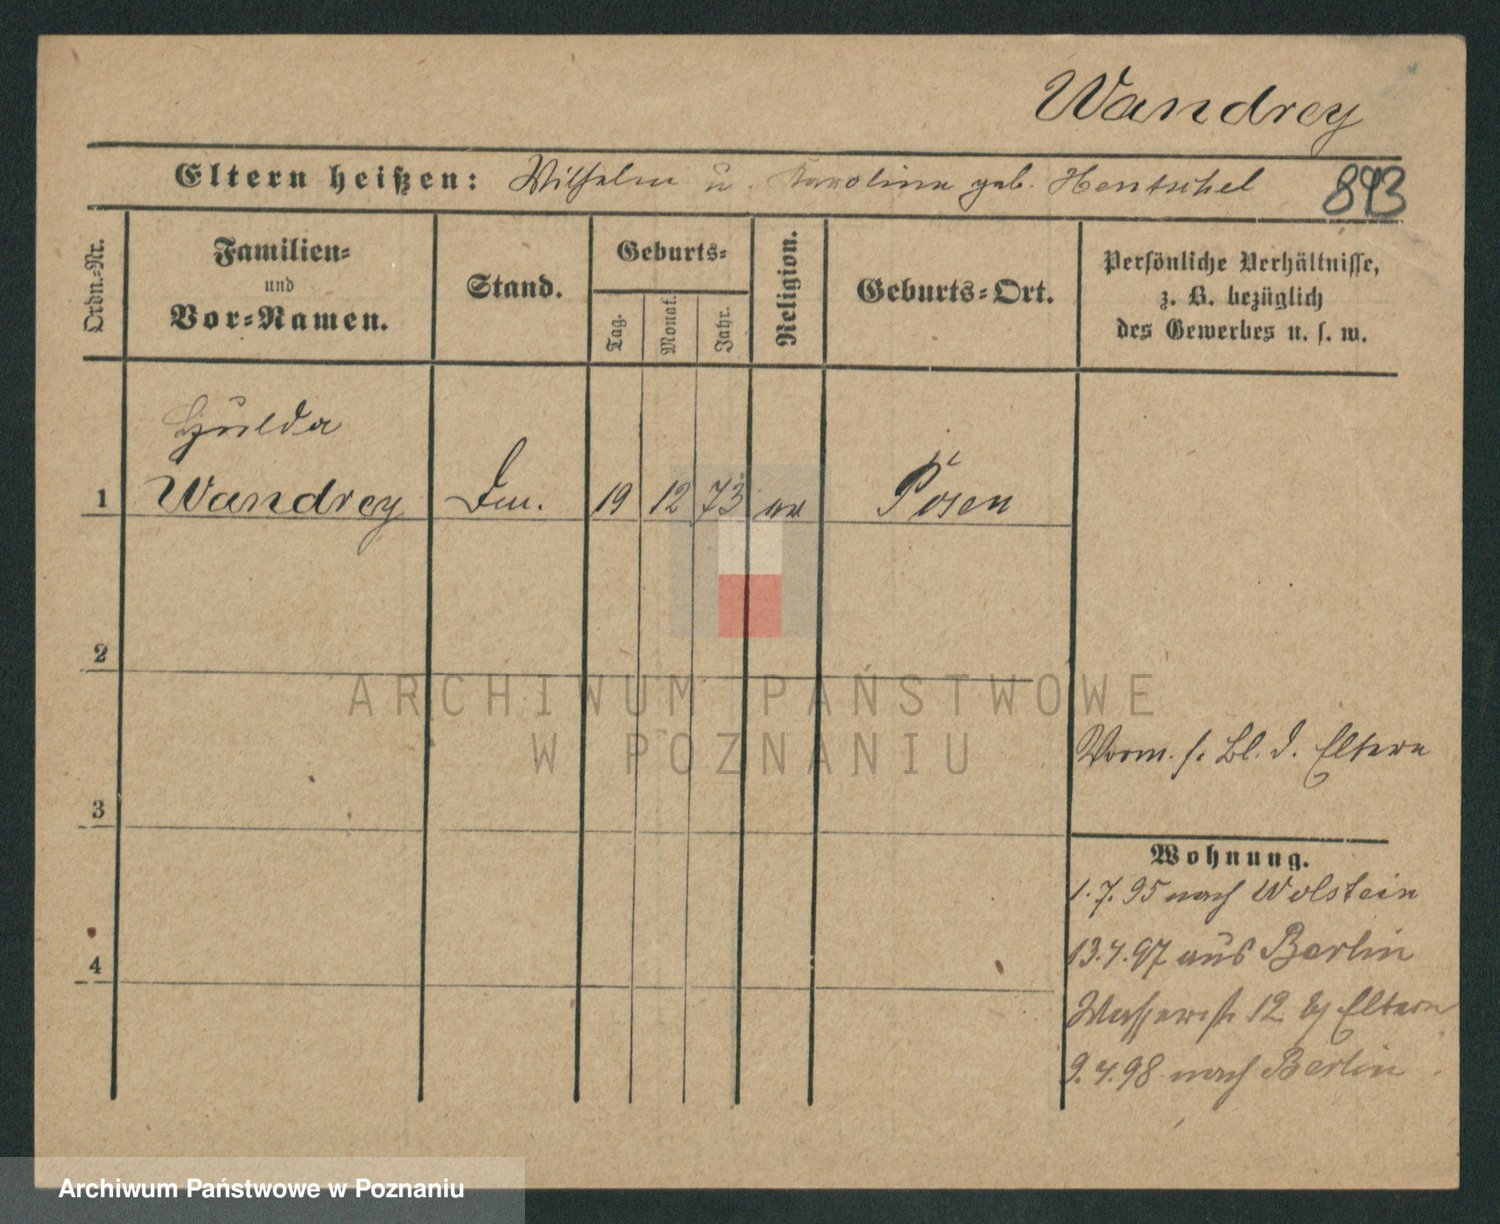 Wandrey
Eltern heißen: Wilhelm u. Karoline geb. Hentschel 893
Ordn.-Nr.
Familien-
und
Vor-Namen.
Stand.
Geburts-
Tag.
Monat.
Jahr.
Religion.
Geburts-Ort.
Persönliche Verhältnisse,
z. B. bezüglich
des Gewerbes u. s. w.
Hulda
1 Wandrey 19 12 73 ev Posen
2
ARCHIWUM PAŃSTWOWE
W POZNANIU
Vorm. s. Bl. d. Eltern
3
Wohnung.
1.7.95 nach Wolstein
13.4.97 aus Berlin
4
12 Eltern
9.4.98 nach Berlin
Archiwum Państwowe w Poznaniu